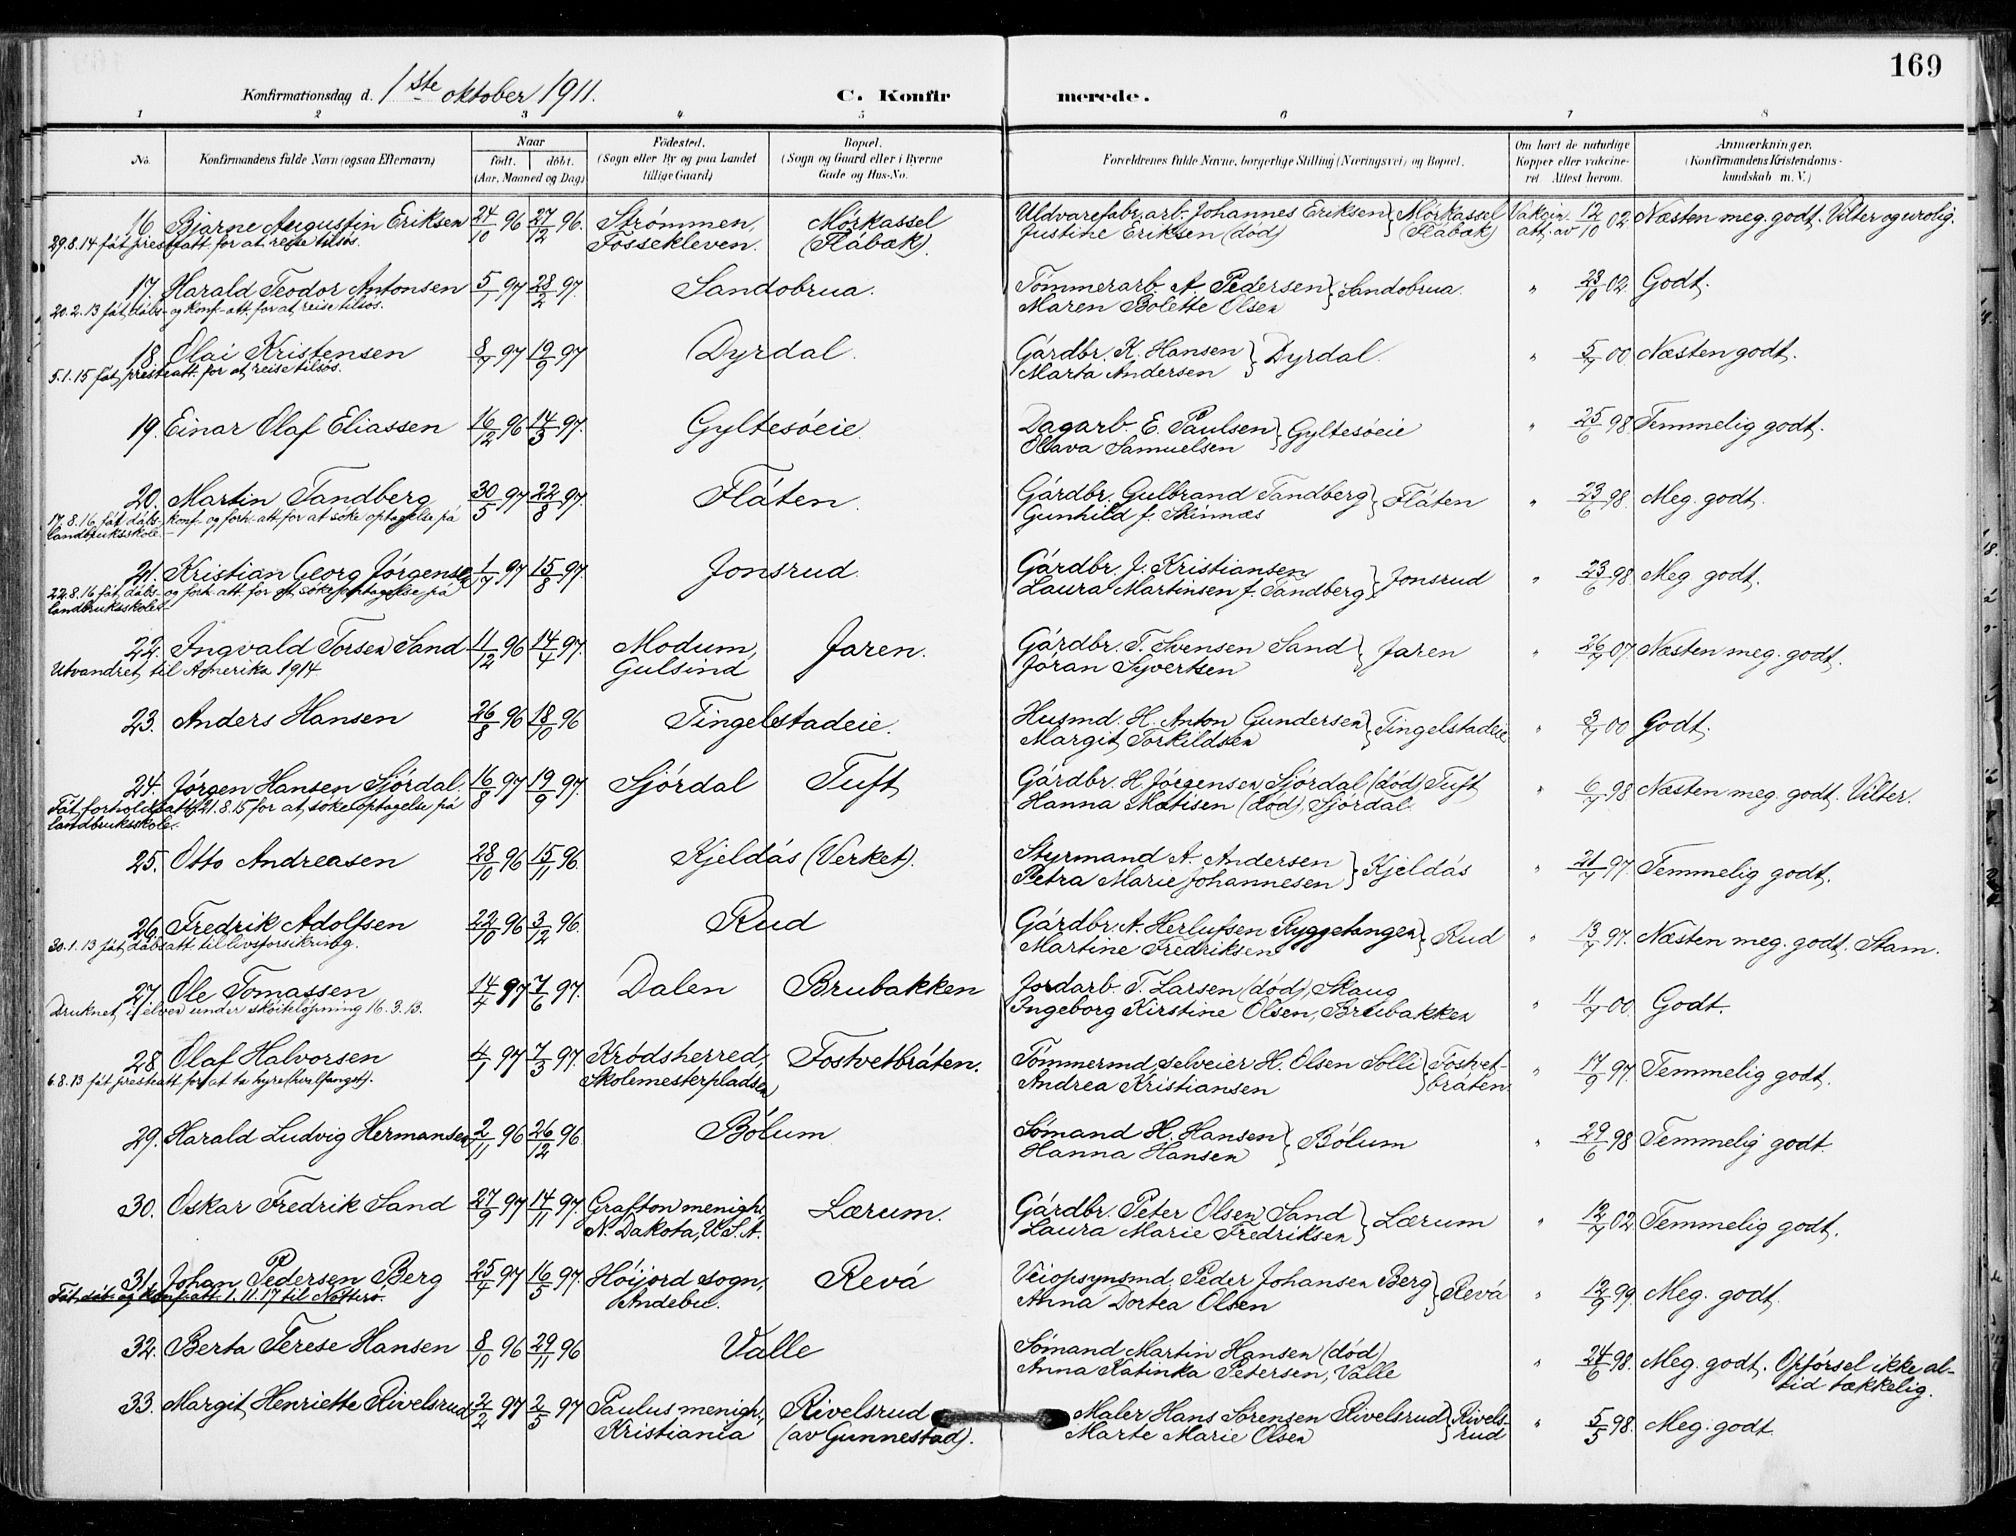 169
Konfirmationsdag d. 1ste oktober 1911.
C. Konfirmerede.
1 2 3 4 5 6 7 8
No. Konfirmandens fulde Navn (ogsaa Efternavn) Naar født. døbt. (Aar, Maaned og Dag) Fødested. (Sogn eller By og paa Landet tillige Gaard) Bopæl. (Sogn og Gaard eller i Byerne Gade og Hus-No. Forældrenes fulde Navne, borgerlige Stilling (Næringsvei) og Bopæl. Om havt de naturlige Kopper eller vakcineret Attest herom. Anmærkninger. (Konfirmandens Kristendomskundskab m. V.)
16. Bjarne Augustin Eriksen 24/10 96 27/12 96. Strømmen, Fossekleven. Mørkassel (Flåbæk). Uldvarefabr.arb. Johannes Eriksen Justine Eriksen (død) } Mørkassel (Flåbæk) Vakcin. att. av 12/10 02. Næsten meg. godt. Vilter og urolig.
29.8.14 fåt prestatt. for at reise tilsøs.
17. Harald Teodor Antonsen 5/1 97 28/2 97. Sandobrua. Tømmerarb. A. Pedersen Maren Bolette Olsen } Sandobrua. " 23/10 02. Godt.
20.2.13 fåt dåbs- og konf-att. for at reise tilsøs.
18. Olai Kristensen 8/7 97 19/9 97 Dyrdal. Gårdbr. K. Hansen Marta Andersen } Dyrdal. " 5/7 00. Næsten godt.
5.1.15 fåt presteatt. for at reise tilsøs.
19. Einar Olaf Eliassen 16/12 96 14/3 97. Gyltesøeie Dagarb. E. Paulsen Olava Samuelsen } Gyltesøeie " 25/6 98. Temmelig godt.
20. Martin Tandberg 30/5 97 22/8 97. Flåten. Gårdbr. Gulbrand Tandberg Gunhild f. Skinnæs } Flåten " 23/6 98. Meg. godt.
17.8.16 fåt dåbs-, konf- og forh-att. for at søke optagelse på
landbruksskole.
21. Kristian Georg Jørgensen 1/7 97 15/8 97. Jonsrud. Gårdbr. J. Kristiansen Laura Martinsen f. Tandberg } Jonsrud " 23/6 98. Meg. godt.
22.8.16 fåt dåbs- og forh-att. for at søke optagelse på
landbruksskolen
22. Ingvald Torsen Sand 11/12 96 14/4 97. Modum, Gulsind Jaren. Gårdbr. T. Svensen Sand Jøran Syvertsen } Jaren " 26/7 07. Næsten meg. godt.
Utvandret til Amerika 1914
23. Anders Hansen 26/8 96 18/10 96 Tingelstadeie. Husmd. H. Anton Gundersen Margit Torkildsen } Tingelstadeie " 3/7 00 Godt.
24. Jørgen Hansen Sjørdal. 16/8 97 19/9 97 Sjørdal Tuft Gårdbr. H. Jørgensen Sjørdal (død) Tuft Hanna Matisen (død), Sjørdal. " 6/7 98 Næsten meg. godt. Vilter.
Fåt forholdsatt. 21.8.15 for at søke optagelse på
landbruksskole.
25. Otto Andreasen 28/10 96 15/11 96. Kjeldås (Verket). Styrmand A. Andersen Petra Marie Johannesen } Kjeldås " 21/7 97. Temmelig godt.
26. Fredrik Adolfsen 22/10 96 3/12 96. Rud Gårdbr. A. Herlufsen Ryggetangen Martine Fredriksen } Rud " 13/7 97. Næsten meg. godt. Stam.
30.1.13 fåt dåbsatt til livsforsikring.
27. Ole Tomassen 14/4 97 7/6 97. Dalen Brubakken Jordarb. T. Larsen (død), Skaug Ingeborg Kirstine Olsen, Brubakken " 11/7 00. Godt.
Druknet i elven under skøiteløpning 16.3.13.
28. Olaf Halvorsen 4/1 97 7/3 97. Krødsherred, Skolemesterpladsen Fostvetbråten. Tømmermd, selveier H. Olsen Solli Andrea Kristiansen } Fostvetbråten " 17/9 97. Temmelig godt.
6.8.13 fåt presteatt for at ta hyre (hvalfangst).
29. Harald Ludvig Hermansen 2/11 96 26/12 96. Bølum Sømand H. Hansen Hanna Hansen } Bølum " 29/6 98 Temmelig godt.
30. Oskar Fredrik Sand 27/9 97 14/11 97. Grafton menigh., N. Dakota, U.S.A. Lærum. Gårdbr. Peter Olsen Sand Laura Marie Fredriksen } Lærum " 12/7 02. Temmelig godt.
31. Johan Pedersen Berg 25/4 97 16/5 97. Høijord sogn, Andebu. Revå Veiopsynsmd. Peder Johansen Berg Anna Dortea Olsen } Revå " 12/9 99. Meg. godt.
Fåt dåbs og konf.att. 1.11.17 til Nøtterø.
32. Berta Terese Hansen 8/10 96 29/11 96 Valle Sømand Martin Hansen (død) Anna Katinka Petersen, Valle " 24/6 98. Meg. godt. Opførsel ikke altid tækkelig.
33. Margit Henriette Rivelsrud 2/2 97 2/5 97 Paulus menigh., Kristiania Rivelsrud (av Gunnestad). Maler Hans Sørensen Rivelsrud Marte Marie Olsen } Rivelsrud " 5/5 98. Meg. godt.